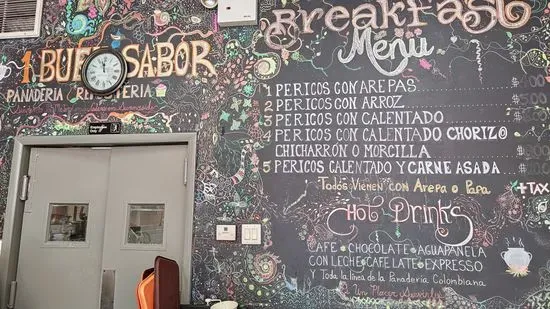 1 BUEN SABOR
PANADERIA
Breakfast
Menu
1 PERICOS CON AREPAS $
2 PERICOS CON ARROZ
3 PERICOS CON CALENTADO
4 PERICOS CON CALENTADO CHORIZO
CHICHARRÓN O MORCILLA
5 PERICOS CALENTADO Y CARNE ASADA
TODOS VIENEN CON AREPA O PAPA
+TAX
HOT DRINKS
CAFE • CHOCOLATE • AGUAPANELA
CON LECHE • CAFE LATE • EXPRESSO
Y TODA LA LÍNEA DE LA PANADERÍA COLOMBIANA
UN PLACER